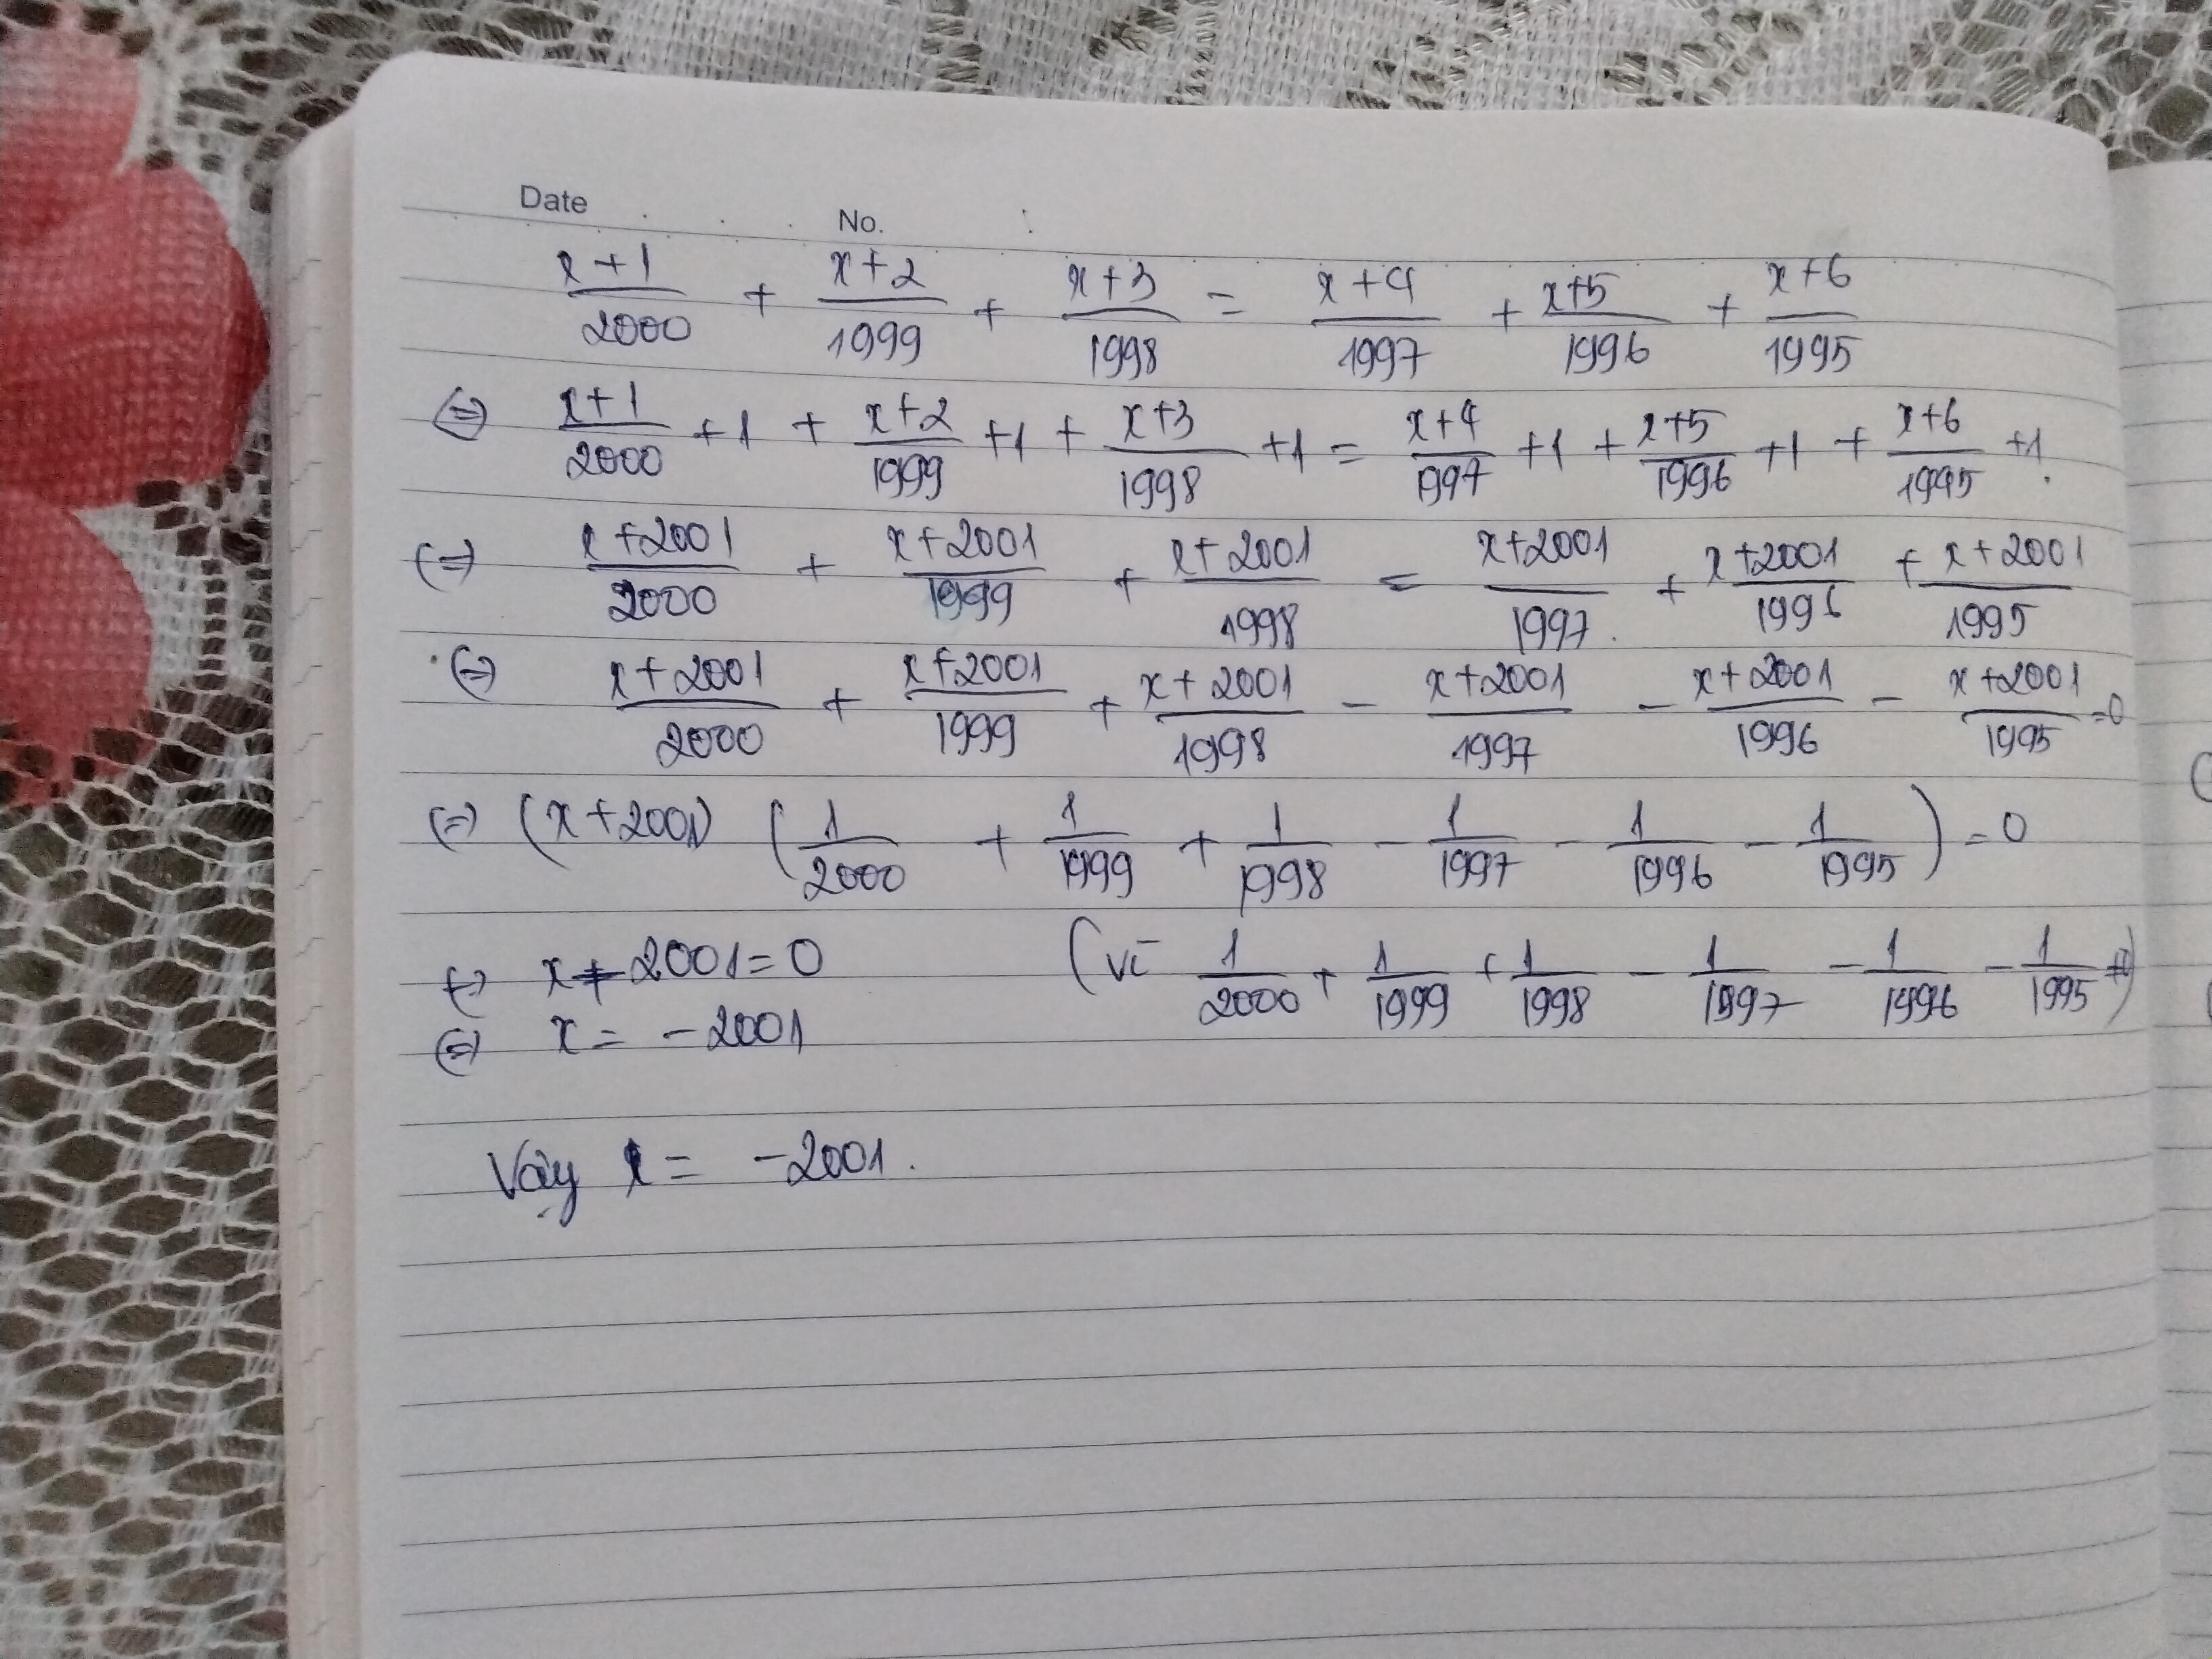 Date No.
x+1/2000 + x+2/1999 + x+3/1998 = x+4/1997 + x+5/1996 + x+6/1995
⇔ x+1/2000 +1 + x+2/1999 +1 + x+3/1998 +1 = x+4/1997 +1 + x+5/1996 +1 + x+6/1995 +1.
⇔ x+2001/2000 + x+2001/1999 + x+2001/1998 = x+2001/1997 + x+2001/1996 + x+2001/1995
⇔ x+2001/2000 + x+2001/1999 + x+2001/1998 - x+2001/1997 - x+2001/1996 - x+2001/1995 =0
⇔ (x+2001) (1/2000 + 1/1999 + 1/1998 - 1/1997 - 1/1996 - 1/1995) = 0
⇔ x+2001=0 (vì 1/2000 + 1/1999 + 1/1998 - 1/1997 - 1/1996 - 1/1995 ≠0)
⇔ x = -2001
Vậy x = -2001.